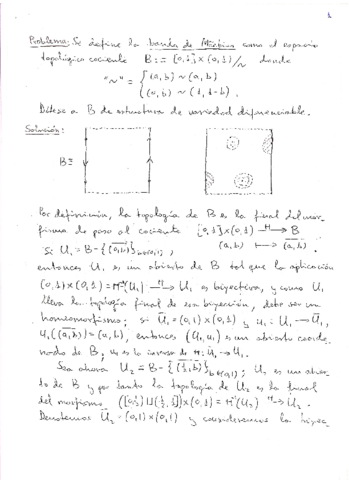 1
Problema: Se define la banda de Möbius como el espacio
topológico cociente B := [0,1]×(0,1)/~ donde
"~" = { (a,b) ~ (a,b)
(0,b) ~ (1,1-b) .
Dótese a B de estructura de variedad diferenciable.
Solución:
B ≡
Por definición, la topología de B es la final del mor-
fismo de paso al cociente [0,1]×(0,1) →π B
(a,b) ↦ (a,b)
Si U₁ = B - {(0,b)}b∈(0,1);
entonces U₁ es un abierto de B tal que la aplicación
(0,1)×(0,1) = π⁻¹(U₁) →π U₁ es biyectiva, y como U₁
lleva la topología final de esa biyección, debe ser un
homeomorfismo; si Ū₁ = (0,1)×(0,1) y u₁: U₁ → Ū₁,
u₁((a,b)) = (a,b), entonces (U₁,u₁) es un abierto coorde
nado de B; u₁ es la inversa de π: Ū₁ → U₁.
Sea ahora U₂ = B - {(½,b)}b∈(0,1); U₂ es un abier
to de B y por tanto la topología de U₂ es la final
del morfismo ([0,½)⊔(½,1])×(0,1) = π⁻¹(U₂) →π U₂.
Denotemos Ū₂ = (0,1)×(0,1) y consideremos la biyec-